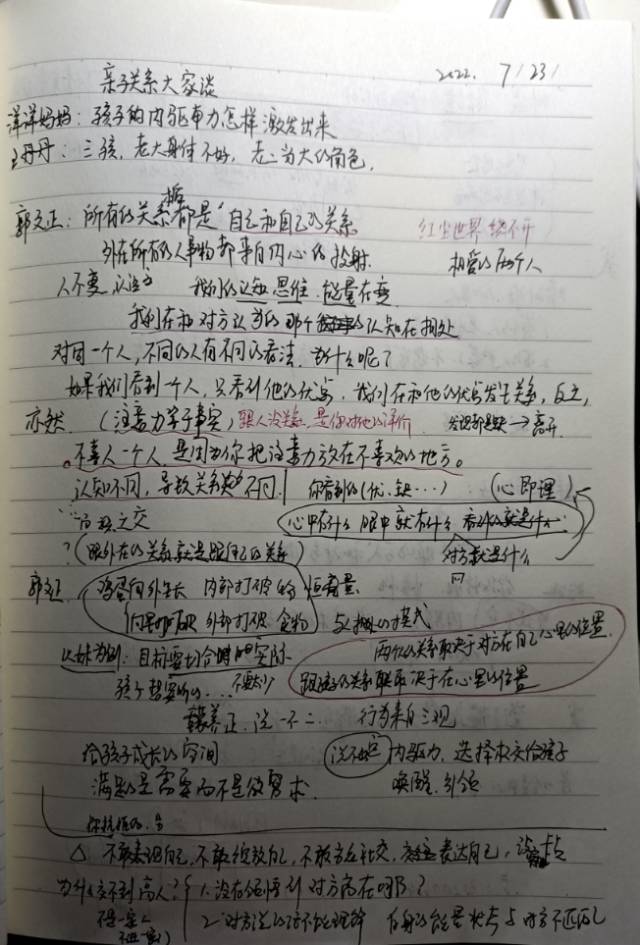 2022. 7/23/
亲子关系大家谈
洋洋妈妈：孩子的内驱动力怎样激发出来
王丹丹：三孩，老大身体不好，老二为大的角色，
郭文正：所有的关系都是“自己和自己的关系
红尘世界 绕不开
外在所有的人事物都来自内心的投射.
相爱的两个人
人不变 我们的认知 思维 能量在变
我们在和对方认为的那个的认知在相处
对同一个人，不同的人有不同的看法. 为什么呢？
如果我们看到一个人，只看到他的优势，我们在和他的优势发生关系，反之，
亦然. （注意力等于事实）跟人没关系，是你对他的评价 发现都是缺→离开
不喜人一个人，是因为你把注意力放在不喜欢的地方。
认知不同，导致关系不同. 你看到的(优、缺…) （心即理）
之交 心中有什么 眼中就有什么 看到的就是什么
？(跟外在的关系就是跟自己的关系) 对方就是什么
郭文正 鸡蛋向外生长 内部打破的 恒有量.
外部打破 食物 模式
两个人的关系取决于对方在自己心里的位置.
目标要切合实际
跟的关系取决于在心里的位置
孩子想要的… 不要太少
善正. 说一不二. 行为来自三观
给孩子成长的空间 内驱力，选择权交给孩子
满足的是需要而不是欲求. 唤醒、引领
△ 不敢表现自己，不敢绽放自己，不敢去社交，表达自己，
为什么交不到高人？ 1. 没有领悟到对方高在哪？
2. 对方说的话不能理解 自身的能量状态与对方不匹配